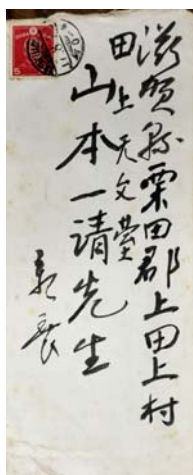 滋賀縣栗田郡上田上村
田上天文臺
山本一清先生
親展
5